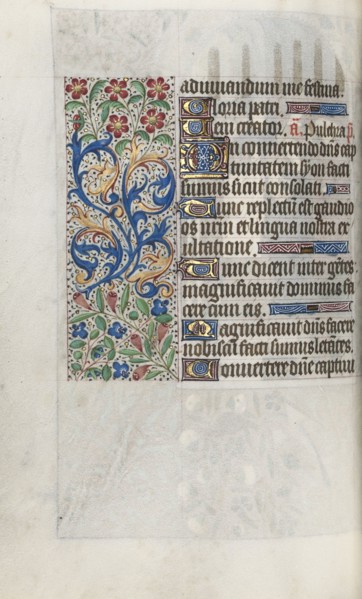 adiuuandum me festina.
Gloria patri.
Veni creator. a. Pulchra
In conuertendo dns cap
tiuitatem syon facti
sumus sicut consolati.
Tunc repletum est gaudio
os nrm et lingua nostra ex
ultatione.
Tunc dicent inter gētes
magnificauit dominus fa
cere cum eis.
Magnificauit dns facere
nobiscū facti sumus letātes.
Conuertere dne captiui